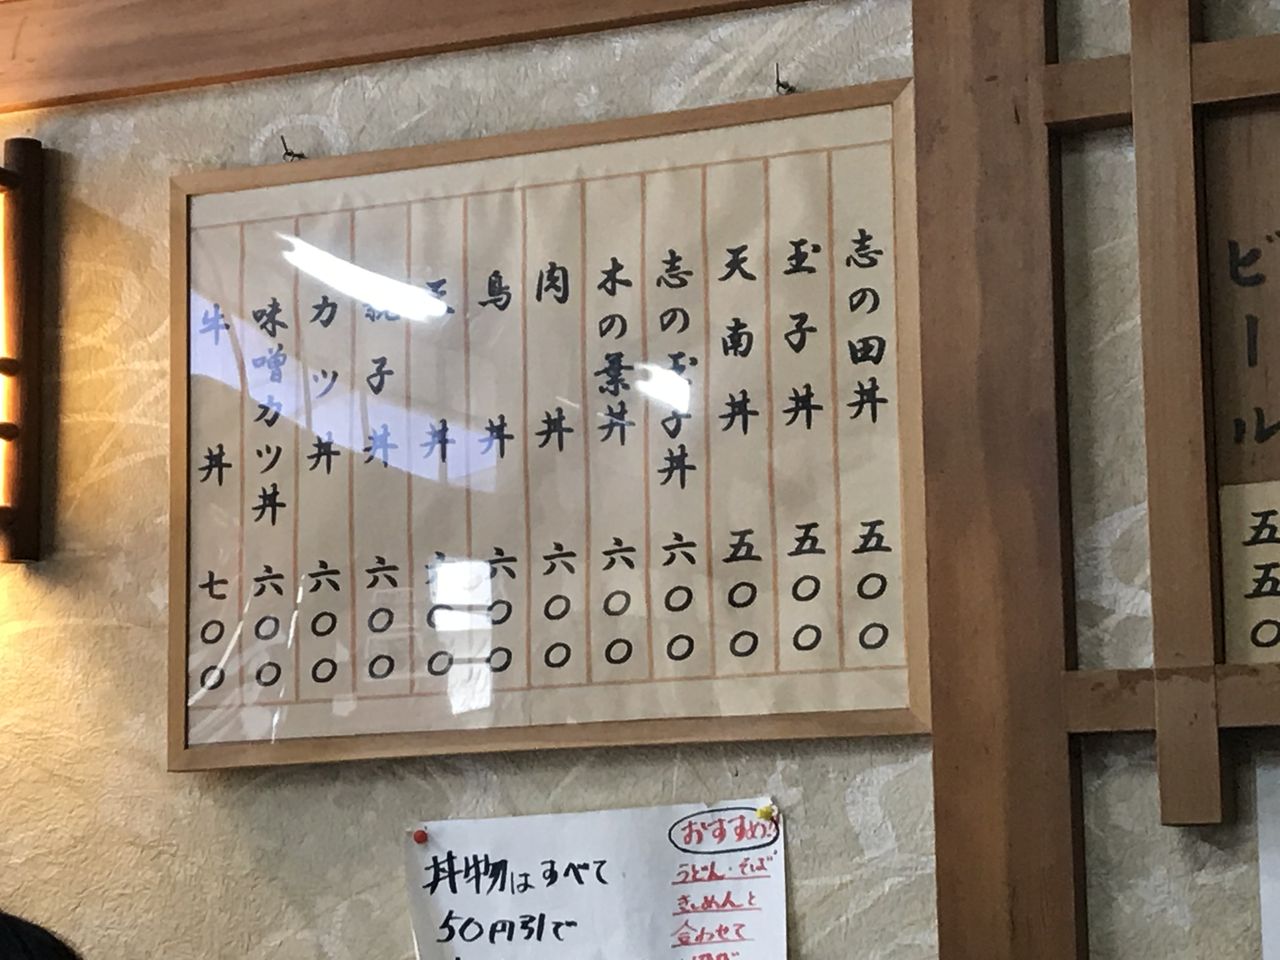 志の田丼 五〇〇
玉子丼 五〇〇
天南丼 五〇〇
志の玉子丼 六〇〇
木の葉丼 六〇〇
肉丼 六〇〇
鳥丼 六〇〇
丼 六〇〇
親子丼 六〇〇
カツ丼 六〇〇
味噌カツ丼 六〇〇
牛丼 七〇〇
ビール 五五〇
おすすめ!!
うどん・そば
きしめんと
合わせて
丼物はすべて
50円引で